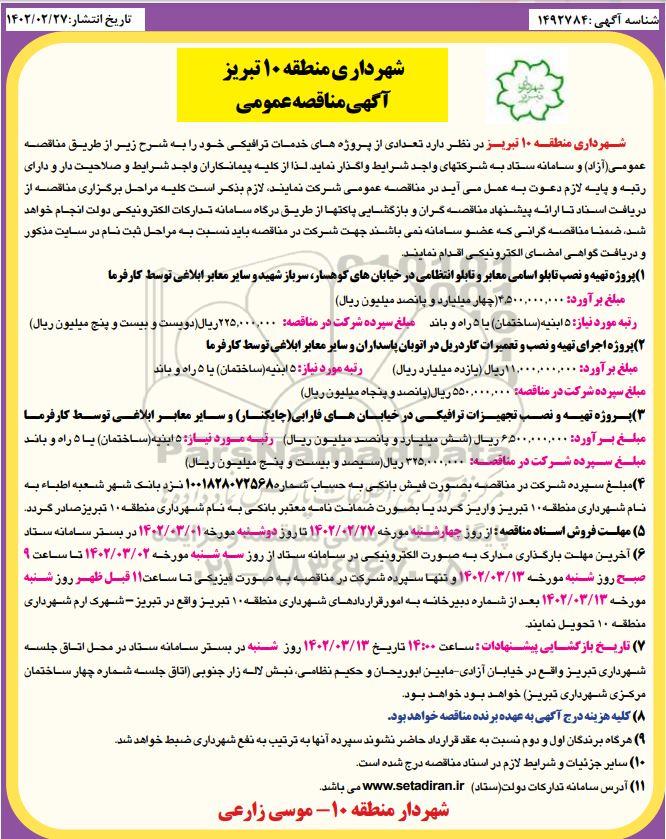 شناسه آگهی :۱۴۹۲۷۸۴
تاریخ انتشار:۱۴۰۲/۰۲/۲۷
شهرداری منطقه ۱۰ تبریز
آگهی مناقصه عمومی
شهرداری منطقه ۱۰ تبریز در نظر دارد تعدادی از پروژه های خدمات ترافیکی خود را به شرح زیر از طریق مناقصه
عمومی(آزاد) و سامانه ستاد به شرکتهای واجد شرایط واگذار نماید. لذا از کلیه پیمانکاران واجد شرایط و صلاحیت دار و دارای
رتبه و پایه لازم دعوت به عمل می آید در مناقصه عمومی شرکت نمایند، لازم بذکر است کلیه مراحل برگزاری مناقصه از
دریافت اسناد تا ارائه پیشنهاد مناقصه گران و بازگشایی پاکتها از طریق درگاه سامانه تدارکات الکترونیکی دولت انجام خواهد
شد، ضمنا مناقصه گرانی که عضو سامانه نمی باشند جهت شرکت در مناقصه باید نسبت به مراحل ثبت نام در سایت مذکور
و دریافت گواهی امضای الکترونیکی اقدام نمایند.
۱)پروژه تهیه و نصب تابلو اسامی معابر و تابلو انتظامی در خیابان های کوهسار، سرباز شهید و سایر معابر ابلاغی توسط کارفرما
مبلغ برآورد: ۴,۵۰۰,۰۰۰,۰۰۰(چهار میلیارد و پانصد میلیون ریال)
رتبه مورد نیاز: ۵ ابنیه(ساختمان) یا ۵ راه و باند مبلغ سپرده شرکت در مناقصه: ۲۲۵,۰۰۰,۰۰۰ریال(دویست و بیست و پنج میلیون ریال)
۲)پروژه اجرای تهیه و نصب و تعمیرات گاردریل در اتوبان پاسداران و سایر معابر ابلاغی توسط کارفرما
مبلغ برآورد: ۱۱,۰۰۰,۰۰۰,۰۰۰ریال (یازده میلیارد ریال) رتبه مورد نیاز: ۵ ابنیه(ساختمان) یا ۵ راه و باند
مبلغ سپرده شرکت در مناقصه: ۵۵۰,۰۰۰,۰۰۰ریال(پانصد و پنجاه میلیون ریال)
۳)پروژه تهیه و نصب تجهیزات ترافیکی در خیابان های فارابی(چایکنار) و سایر معابر ابلاغی توسط کارفرما
مبلغ برآورد: ۶,۵۰۰,۰۰۰,۰۰۰ریال (شش میلیارد و پانصد میلیون ریال) رتبه مورد نیاز: ۵ ابنیه(ساختمان) یا ۵ راه و باند
مبلغ سپرده شرکت در مناقصه: ۳۲۵,۰۰۰,۰۰۰ ریال(سیصد و بیست و پنج میلیون ریال)
۴)مبلغ سپرده شرکت در مناقصه بصورت فیش بانکی به حساب شماره۱۰۰۱۸۲۸۰۷۲۵۶۸ نزد بانک شهر شعبه اطباء به
نام شهرداری منطقه۱۰ تبریز واریز گردد یا بصورت ضمانت نامه معتبر بانکی به نام شهرداری منطقه۱۰ تبریز صادر گردد.
۵) مهلت فروش اسناد مناقصه : از روز چهارشنبه مورخه ۱۴۰۲/۰۲/۲۷ تا روز دوشنبه مورخه ۱۴۰۲/۰۳/۰۱ در بستر سامانه ستاد
۶) آخرین مهلت بارگذاری مدارک به صورت الکترونیکی در سامانه ستاد از روز سه شنبه مورخه ۱۴۰۲/۰۳/۰۲ تا ساعت ۹
صبح روز شنبه مورخه ۱۴۰۲/۰۳/۱۳ و تنها سپرده شرکت در مناقصه به صورت فیزیکی تا ساعت۱۱ قبل ظهر روز شنبه
مورخه ۱۴۰۲/۰۳/۱۳ بعد از شماره دبیرخانه به امور قراردادهای شهرداری منطقه۱۰ تبریز واقع در تبریز-شهرک ارم شهرداری
منطقه ۱۰ تحویل نمایند.
۷) تاریخ بازگشایی پیشنهادات : ساعت ۱۴:۰۰ تاریخ ۱۴۰۲/۰۳/۱۳ روز شنبه در بستر سامانه ستاد در محل اتاق جلسه
شهرداری تبریز واقع در خیابان آزادی-مابین ابوریحان و حکیم نظامی، نبش لاله زار جنوبی (اتاق جلسه شماره چهار ساختمان
مرکزی شهرداری تبریز) خواهد بود خواهد بود.
۸) کلیه هزینه درج آگهی به عهده برنده مناقصه خواهد بود.
۹) هرگاه برندگان اول و دوم نسبت به عقد قرارداد حاضر نشوند سپرده آنها به ترتیب به نفع شهرداری ضبط خواهد شد.
۱۰) سایر جزئیات و شرایط لازم در اسناد مناقصه درج شده است.
۱۱) آدرس سامانه تدارکات دولت(ستاد) www.setadiran.ir می باشد.
شهردار منطقه ۱۰- موسی زارعی
ParsNamadData